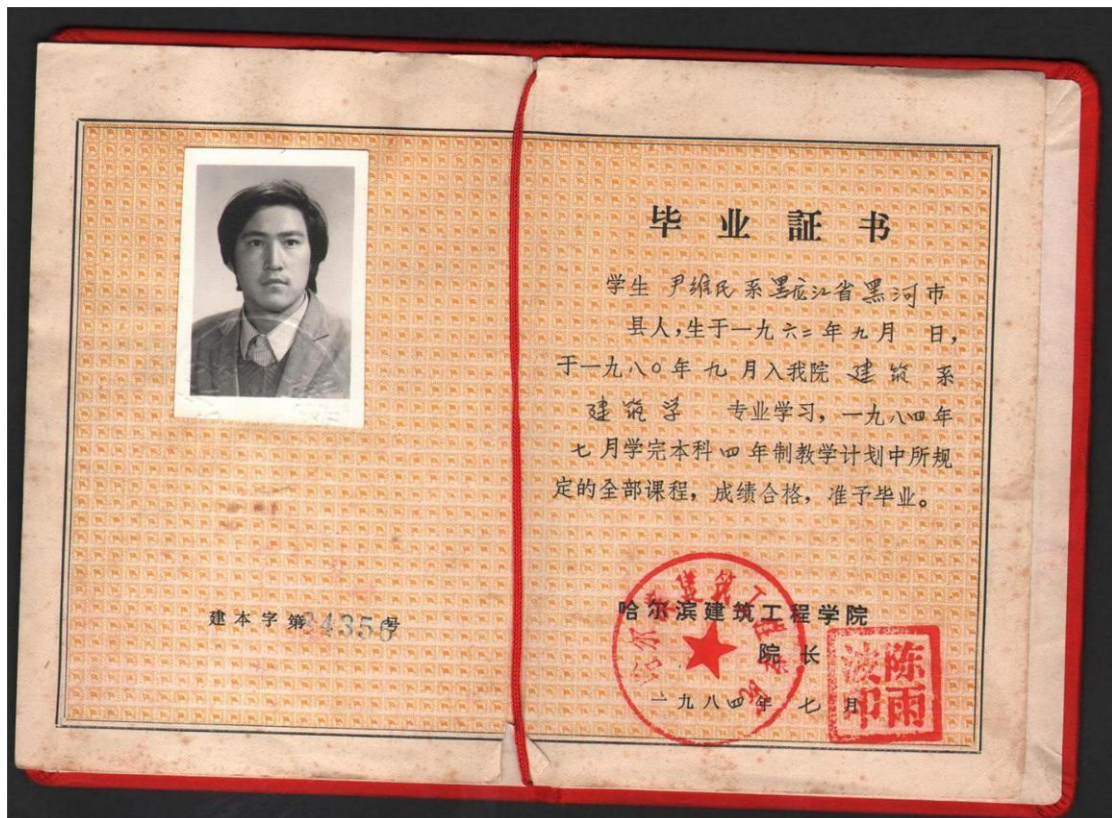 建本字第84356号
毕业証书
学生 尹维民 系黑龙江省黑河市
县人，生于一九六二年九月 日，
于一九八〇年九月入我院 建筑 系
建筑学 专业学习，一九八四年
七月学完本科四年制教学计划中所规
定的全部课程，成绩合格，准予毕业。
哈尔滨建筑工程学院
院长
一九八四年七月
哈尔滨建筑工程学院
陈雨波印